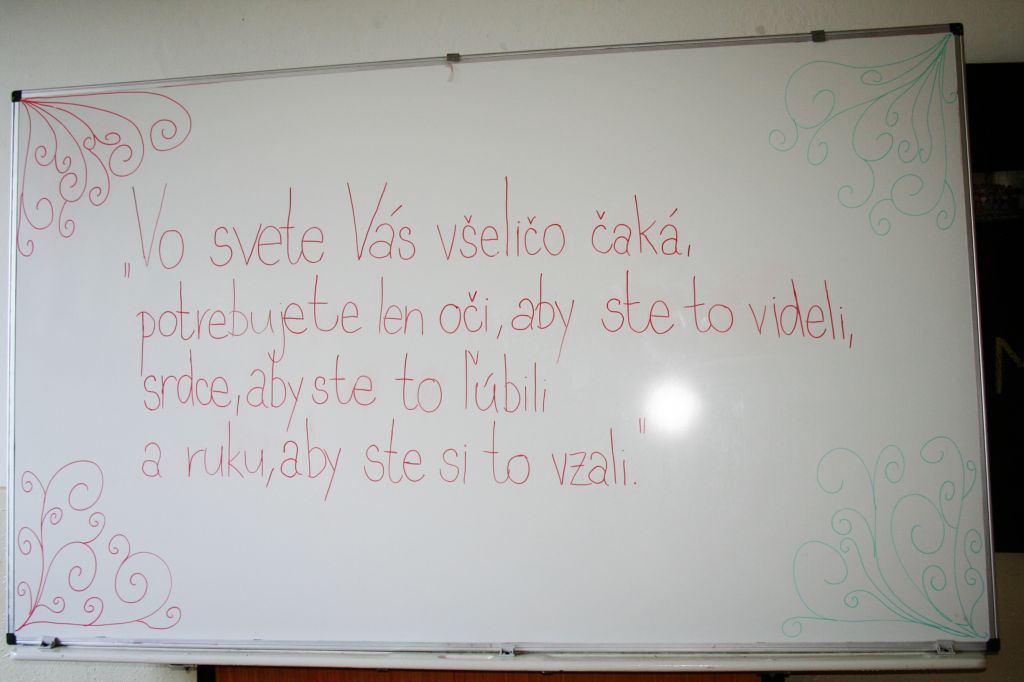 „Vo svete Vás všeličo čaká,
potrebujete len oči, aby ste to videli,
srdce, aby ste to ľúbili
a ruku, aby ste si to vzali."